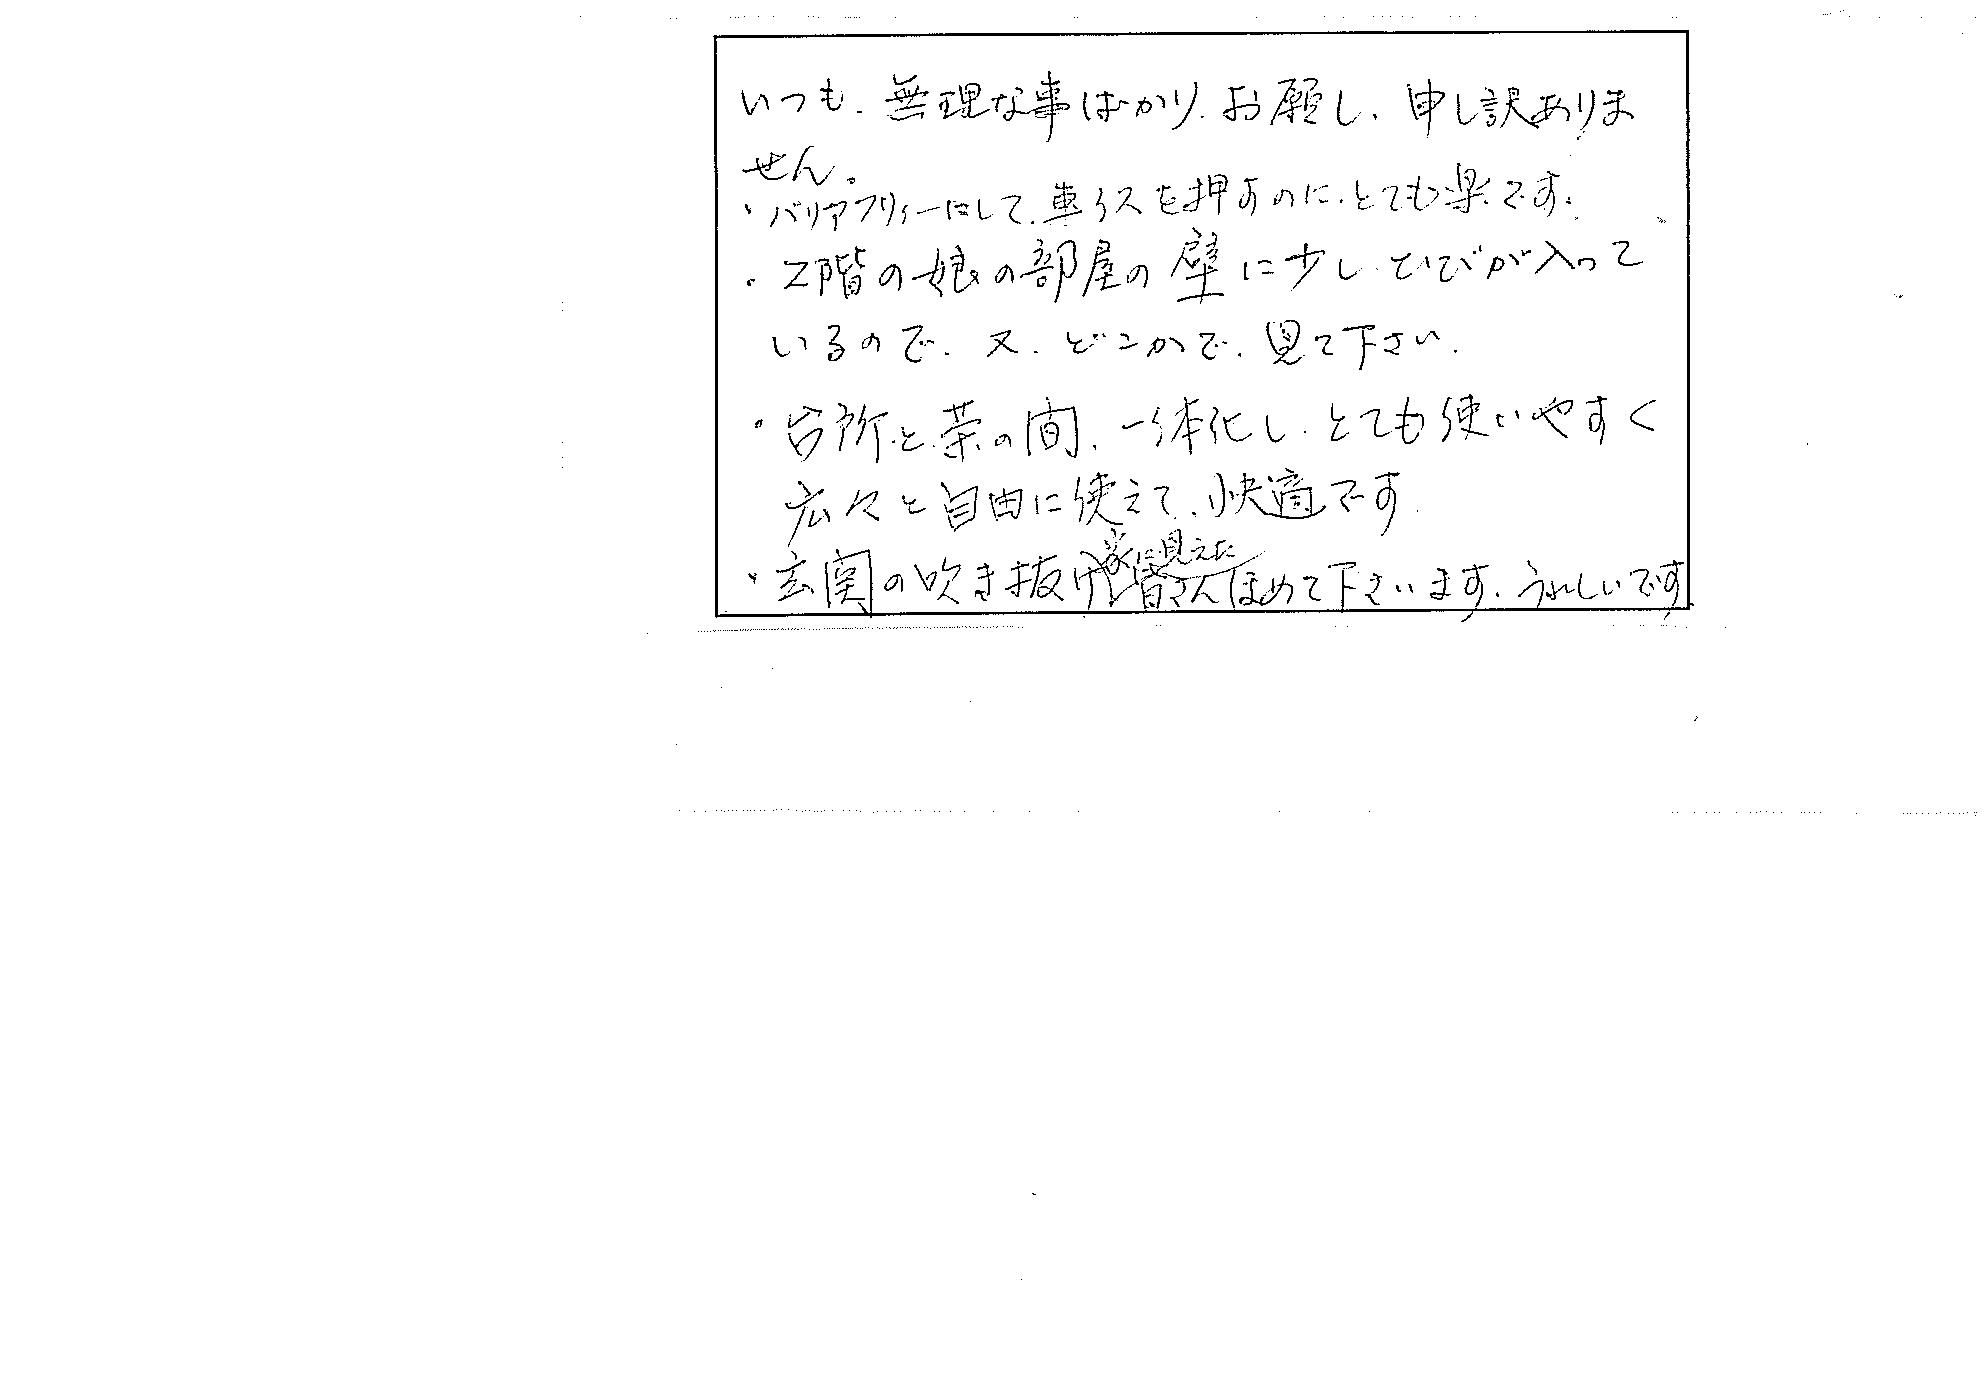 いつも、無理な事ばかり、お願し、申し訳ありま
せん。
・バリアフリィーにして、車イスを押すのに、とても楽です。
・2階の娘の部屋の壁に少し、ひびが入って
いるので、又、どこかで、見て下さい。
・台所と茶の間、一体化し、とても使いやすく
広々と自由に使えて、快適です
家に見えた
・玄関の吹き抜け、皆さんほめて下さいます。うれしいです